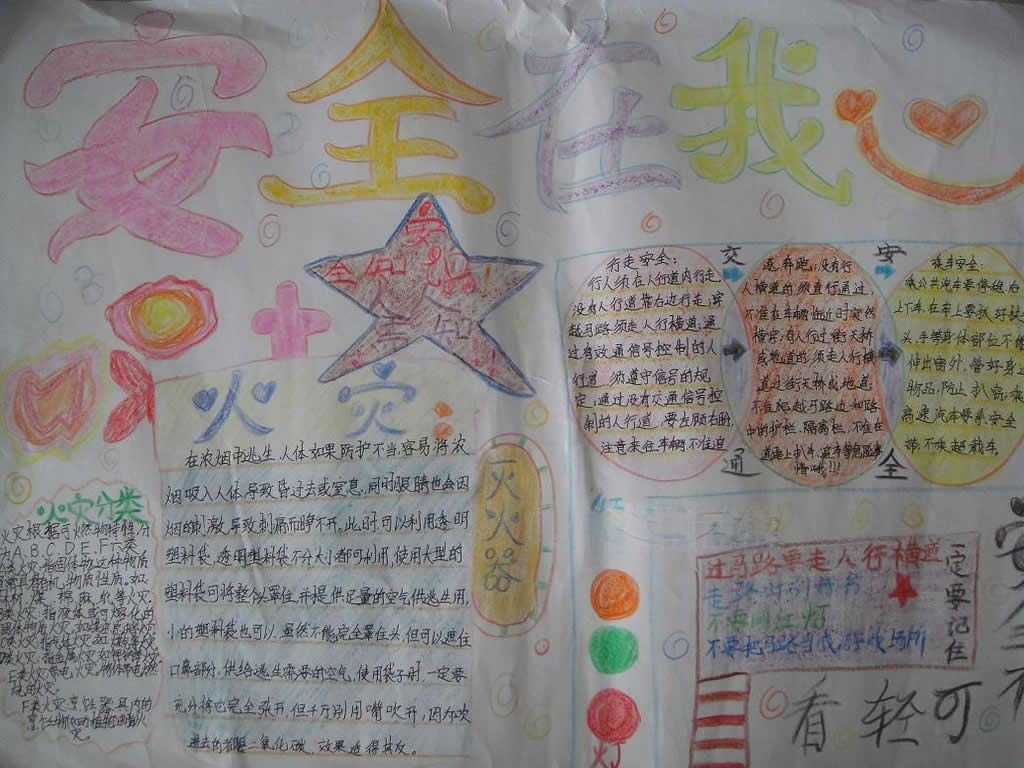 安全在我
安全知
火灾
在浓烟中逃生,人体如果防护不当,容易将浓
烟吸入人体,导致昏过去或窒息,同时眼睛也会因
烟的刺激,导致刺痛而睁不开,此时可以利用透明
塑料袋,透明塑料袋不分大小都可利用,使用大型的
塑料袋可将整个头罩住,并提供足量的空气供逃生用,
小的塑料袋也可以,虽然不能完全罩住头,但可以遮住
口鼻部分,供给逃生需要的空气,使用袋子时,一定要
充分将它完全张开,但千万别用嘴吹开,因为吹
进去的都是二氧化碳,效果适得其反。
灭火器
火灾分类
火灾根据可燃物特性分
为A、B、C、D、E、F六类
E类火灾:带电火灾,物体带电燃
F类火灾:烹饪器具内的
交通安全
行走安全:
行人须在人行道内行走,
没有人行道靠右边行走;穿
越马路须走人行横道;通
过有交通信号控制的人
行道,须遵守信号的规
定;通过没有交通信号控
制的人行道,要左顾右盼,
注意来往车辆,不准追
逐、奔跑;没有行
人横道的须直行通过,
不准在车辆临近时突然
横穿;有人行过街天桥
或地道的须走人行横
道过街天桥或地道;
不准爬越马路边和路
中的护栏、隔离栏,不准在
道路上扒车、追车
乘车安全:
乘公共汽车要停稳后
上下车,在车上要抓好扶
头、手等身体部位不能
伸出窗外,管好身边
物品,防止扒窃;乘
高速汽车要系安全
带;不乘超载车。
红
灯
过马路要走人行横道
走路时别看书
不要闯红灯
不要把马路当成游戏场所
一定要记住
看轻可
安全不